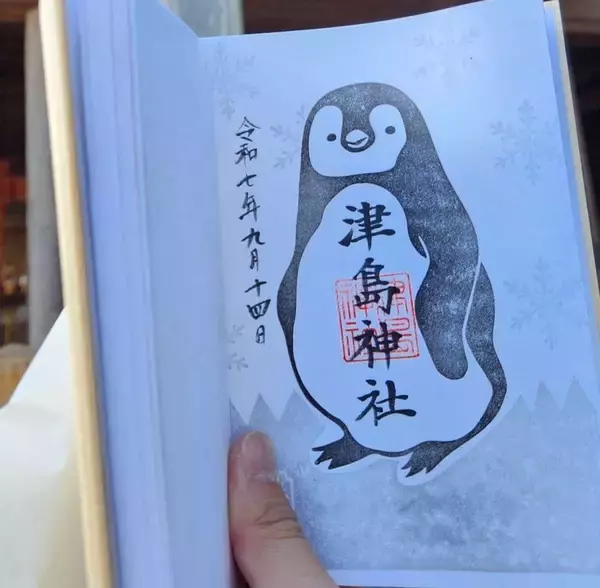 津島神社
令和七年九月十四日